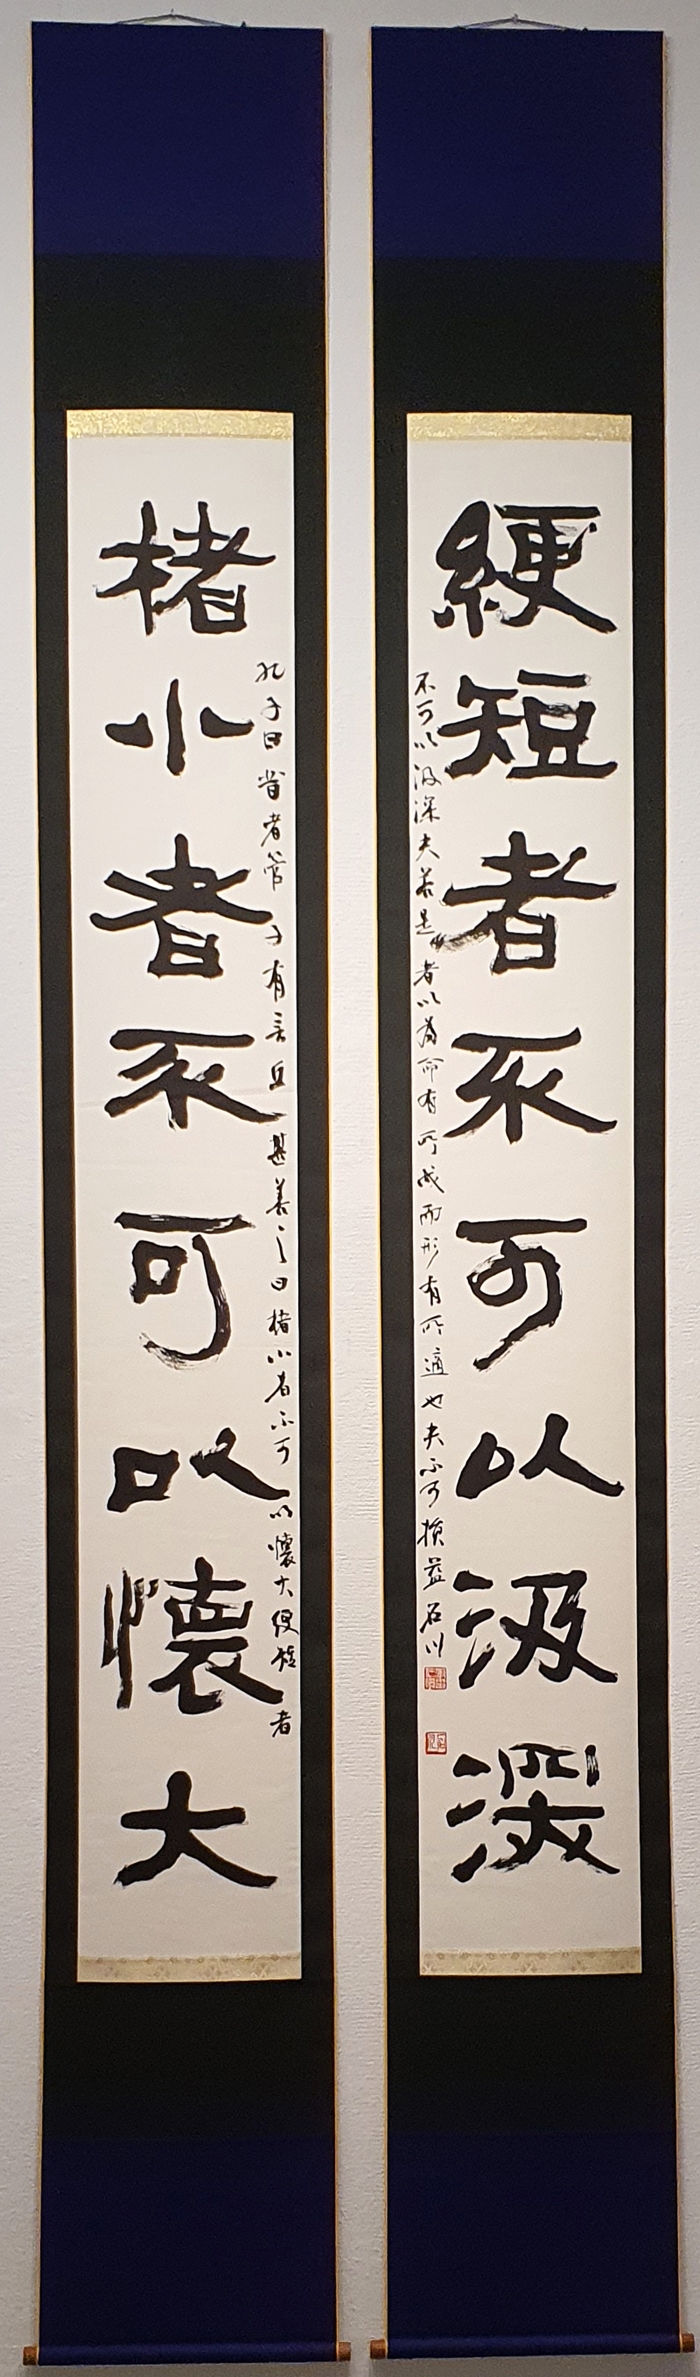 綆短者不可以汲深
不可以汲深夫若是者以為命有所成而形有所適也夫不可損益石川
孔子曰昔者管子有言丘甚善之曰楮小者不可以懷大綆短者
楮小者不可以懷大